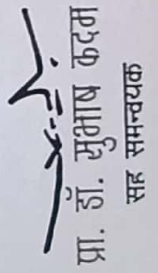 प्रा. डॉ. सुभाष कदम
सह समन्वयक